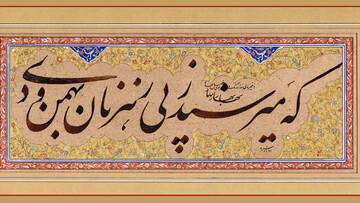 که میرسند ز پی رهزنان بهمن و دی